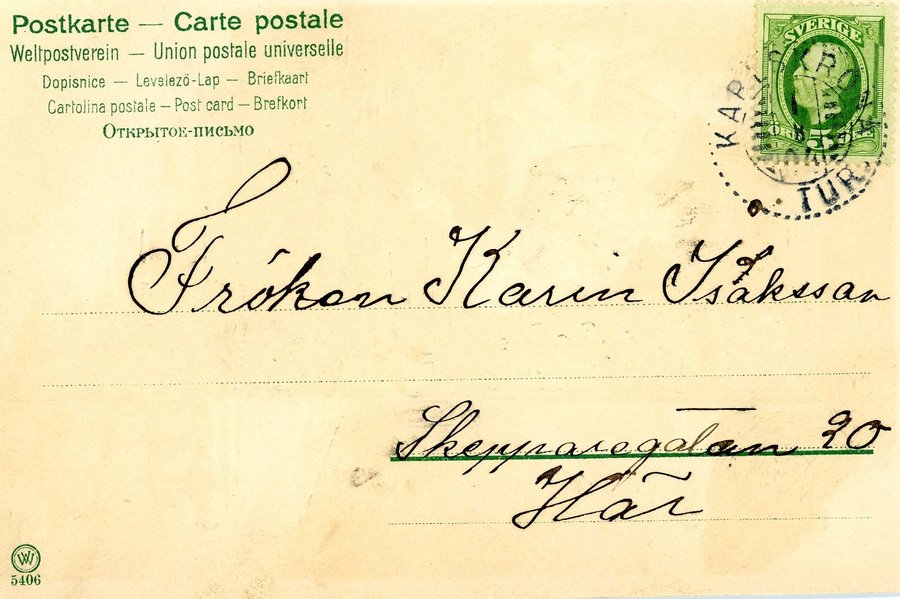 Postkarte — Carte postale
Weltpostverein — Union postale universelle
Dopisnice — Levelező-Lap — Briefkaart
Cartolina postale — Post card — Brefkort
Открытое-письмо
SVERIGE
5
TUR
Fröken Karin Isakssan
Skepparegatan 20
Här
W
5406